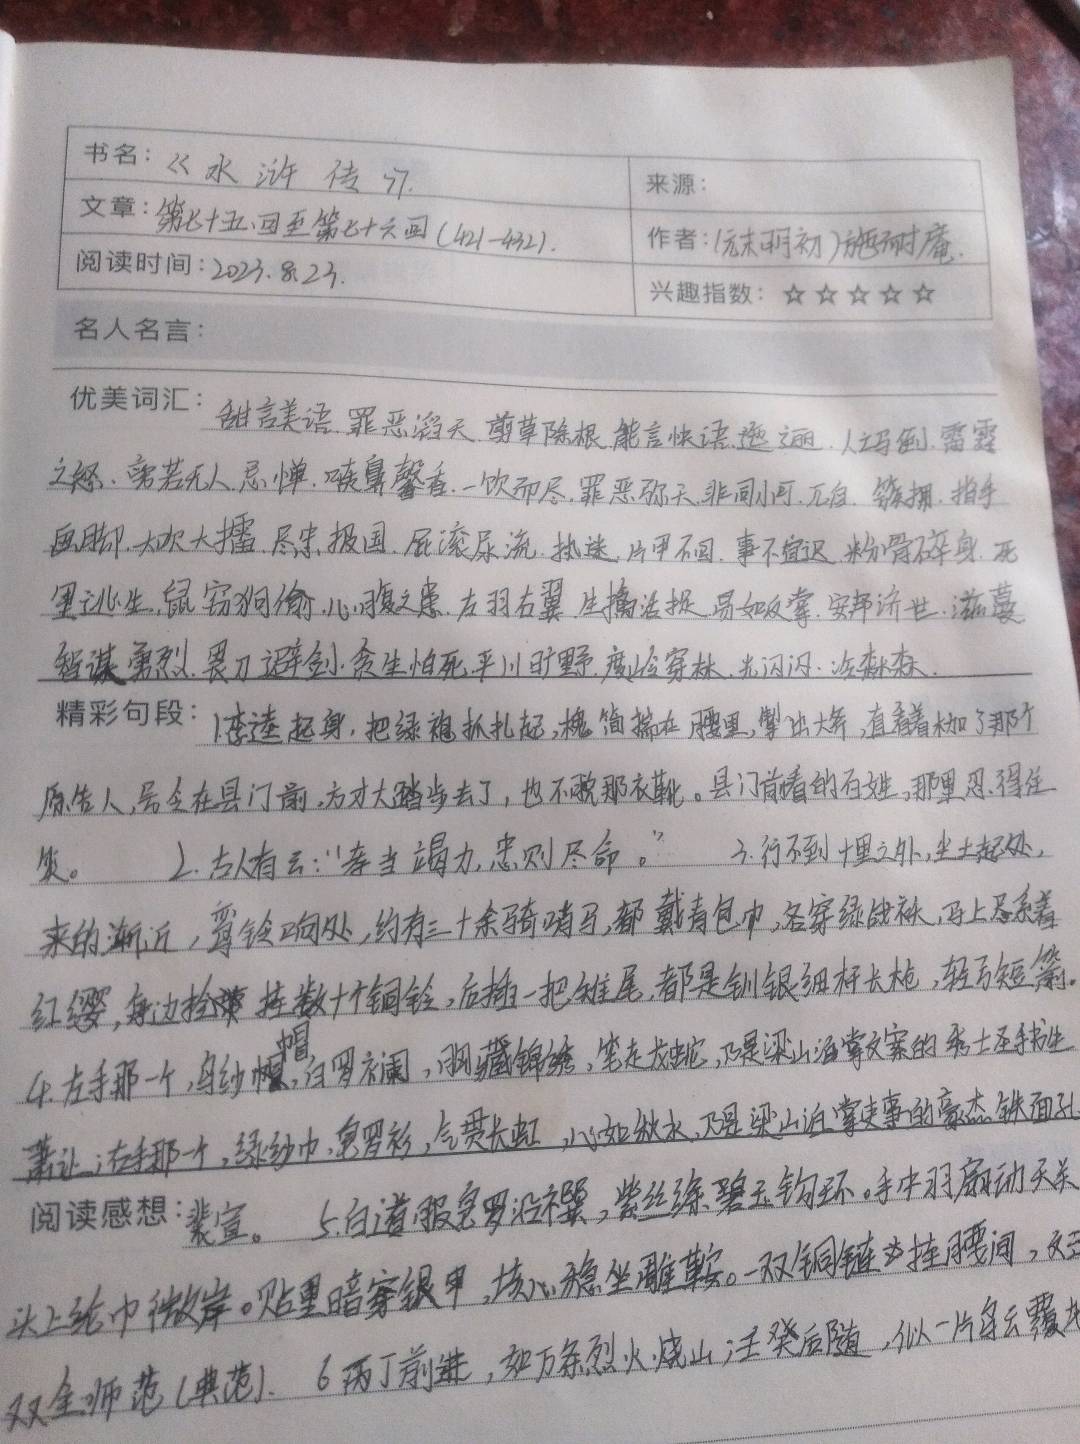 书名：《水浒传》.
来源：
文章：第七十五回至第七十六回(421-432).
作者：(元末明初)施耐庵.
阅读时间：2023.8.23.
兴趣指数：☆☆☆☆☆
名人名言：
优美词汇：甜言美语.罪恶滔天.剪草除根.能言快语.迤逦.人马倒.雷霆
之怒.旁若无人.忌惮.喷鼻馨香.一饮而尽.罪恶弥天.非同小可.兀自.簇拥.指手
画脚.大吹大擂.尽忠报国.屁滚尿流.执迷.片甲不回.事不宜迟.粉骨碎身.死
里逃生.鼠窃狗偷.心腹之患.左羽右翼.生擒活捉.易如反掌.安邦济世.滋蔓
智谋勇烈.畏刀避剑.贪生怕死.平川旷野.度岭穿林.光闪闪.冷森森.
精彩句段：1.李逵起身，把绿袍抓扎起，槐简揣在腰里，掣出大斧，直看着枷了那个
原告人，号令在县门前，方才大踏步去了，也不脱那衣靴。县门前看的百姓，那里忍得住
笑。 2.古人有云：“孝当竭力，忠则尽命。” 3.行不到十里之外，尘土起处，
来的渐近，鸾铃响处，约有三十余骑哨马，都戴青包巾，各穿绿战袄，马上尽系着
红缨，每边拴挂数十个铜铃，后插一把雉尾，都是钏银细杆长枪，轻弓短箭。
4.左手那一个，乌纱帽，白罗襕，胸藏锦绣，笔走龙蛇，乃是梁山泊掌文案的秀士圣手书生
萧让；右手那一个，绿纱巾，皂罗衫，气贯长虹，心如秋水，乃是梁山泊掌吏事的豪杰铁面孔
阅读感想：裴宣。 5.白道服皂罗沿襈，紫丝绦碧玉钩环。手中羽扇动天关
头上纶巾微岸。贴里暗穿银甲，垓心稳坐雕鞍。一双铜链挂腰间，文武
双全师范(典范). 6.丙丁前进，如万条烈火烧山；壬癸后随，似一片乌云覆地